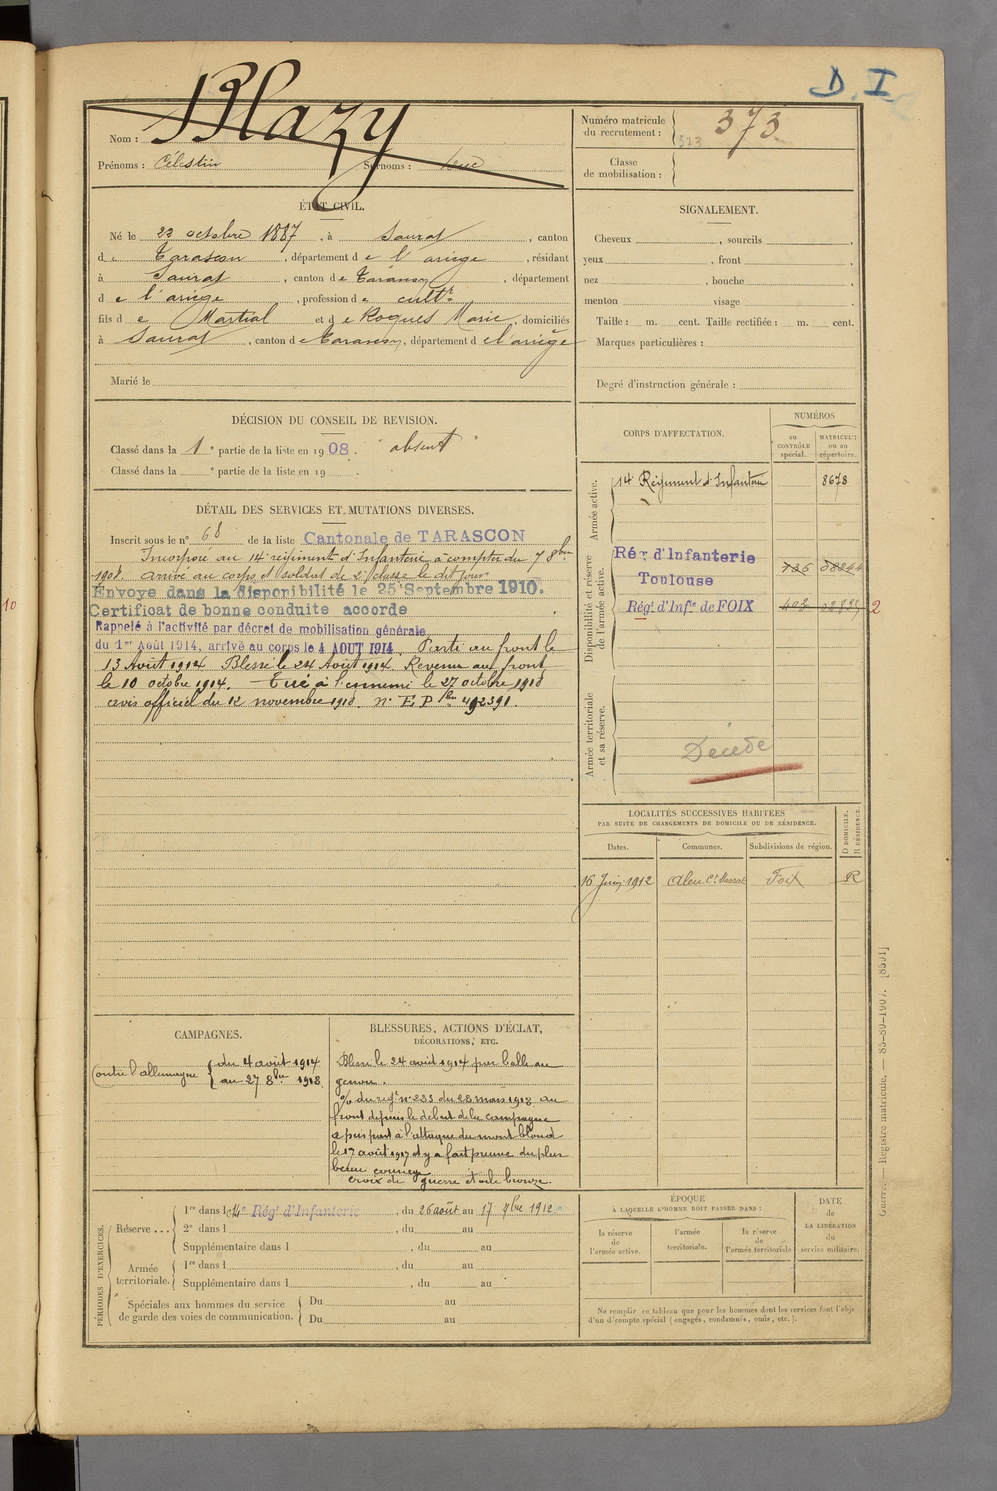 D. I
Blazy
Nom :
Prénoms : Célestin Surnoms : Luc
Numéro matricule du recrutement : 373
323
Classe de mobilisation :
ÉTAT CIVIL.
Né le 22 octobre 1887, à Saurat, canton
de Tarascon, département de l'ariège, résidant
à Saurat, canton de Tarascon, département
de l'ariège, profession de cultr
fils de Martial et de Roques Marie, domiciliés
à Saurat, canton de Tarascon, département de l'ariège
Marié le
SIGNALEMENT.
Cheveux , sourcils ,
yeux , front ,
nez , bouche ,
menton visage
Taille : m. cent. Taille rectifiée : m. cent.
Marques particulières :
Degré d'instruction générale :
DÉCISION DU CONSEIL DE REVISION.
Classé dans la 1e partie de la liste en 1908. "absent"
Classé dans la e partie de la liste en 19 .
DÉTAIL DES SERVICES ET MUTATIONS DIVERSES.
Inscrit sous le n° 68 de la liste Cantonale de TARASCON
Incorporé au 14e régiment d'Infanterie à compter du 7 8bre
1908. arrivé au corps et soldat de 2e classe le dit jour
Envoyé dans la disponibilité le 25 Septembre 1910.
Certificat de bonne conduite accordé
Rappelé à l'activité par décret de mobilisation générale
du 1er Août 1914, arrivé au corps le 4 AOUT 1914. Parti au front le
13 Août 1914. Blessé le 24 Août 1914. Revenu au front
le 10 octobre 1914. Tué à l'ennemi le 27 octobre 1918
avis officiel du 12 novembre 1918. n° E P 492391.
CORPS D'AFFECTATION.
NUMÉROS
au CONTRÔLE spécial.
MATRICULE ou au répertoire.
Armée active.
14e Régiment d'Infanterie 8678
Disponibilité et réserve de l'armée active.
Rég. d'Infanterie
Toulouse
Régt d'Infie de FOIX 2
Armée territoriale et sa réserve.
Décédé
LOCALITÉS SUCCESSIVES HABITÉES
PAR SUITE DE CHANGEMENTS DE DOMICILE OU DE RÉSIDENCE.
Dates. Communes. Subdivisions de région. D DOMICILE. R RÉSIDENCE.
16 Juin 1912 Aleu Foix R
CAMPAGNES.
Contre l'allemagne { du 4 août 1914
au 27 8bre 1918.
BLESSURES, ACTIONS D'ÉCLAT,
DÉCORATIONS, ETC.
Blessé le 24 août 1914 par balle au
genou.
du regt n° 233 du 28 mars 1918. au
front depuis le début de la campagne
a pris part à l'attaque du mont blond
le 17 août 1917 et y a fait preuve du plus
beau courage
croix de guerre étoile bronze.
PÉRIODES D'EXERCICES.
Réserve ...
1re dans l 14e Régt d'Infanterie, du 26 août au 17 7bre 1912.
2e dans l , du au
Supplémentaire dans l , du au
Armée territoriale.
1re dans l , du au
Supplémentaire dans l , du au
Spéciales aux hommes du service de garde des voies de communication.
Du au
Du au
ÉPOQUE
À LAQUELLE L'HOMME DOIT PASSER DANS :
la réserve de l'armée active.
l'armée territoriale.
la réserve de l'armée territoriale
DATE de LA LIBÉRATION du service militaire.
Ne remplir ce tableau que pour les hommes dont les services font l'objet
d'un décompte spécial (engagés, condamnés, omis, etc.).
Guerre. — Registre matricule. — 85-80-1907. [8591]
10